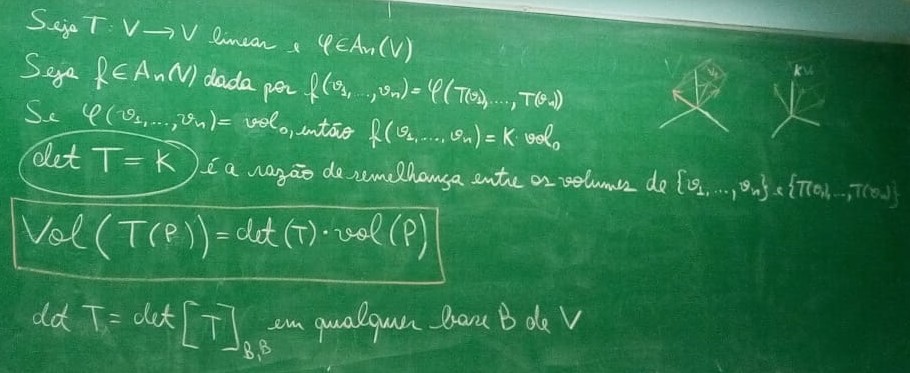 Seja T: V → V linear e φ ∈ An(V)
Seja f ∈ An(V) dada por f(v₁, ..., vn) = φ(T(v₁), ..., T(vn))
Se φ(v₁, ..., vn) = vol₀, então f(v₁, ..., vn) = K · vol₀
det T = K é a razão de semelhança entre os volumes de {v₁, ..., vn} e {T(v₁), ..., T(vn)}
Vol(T(P)) = det(T) · vol(P)
det T = det [T]B,B em qualquer base B de V